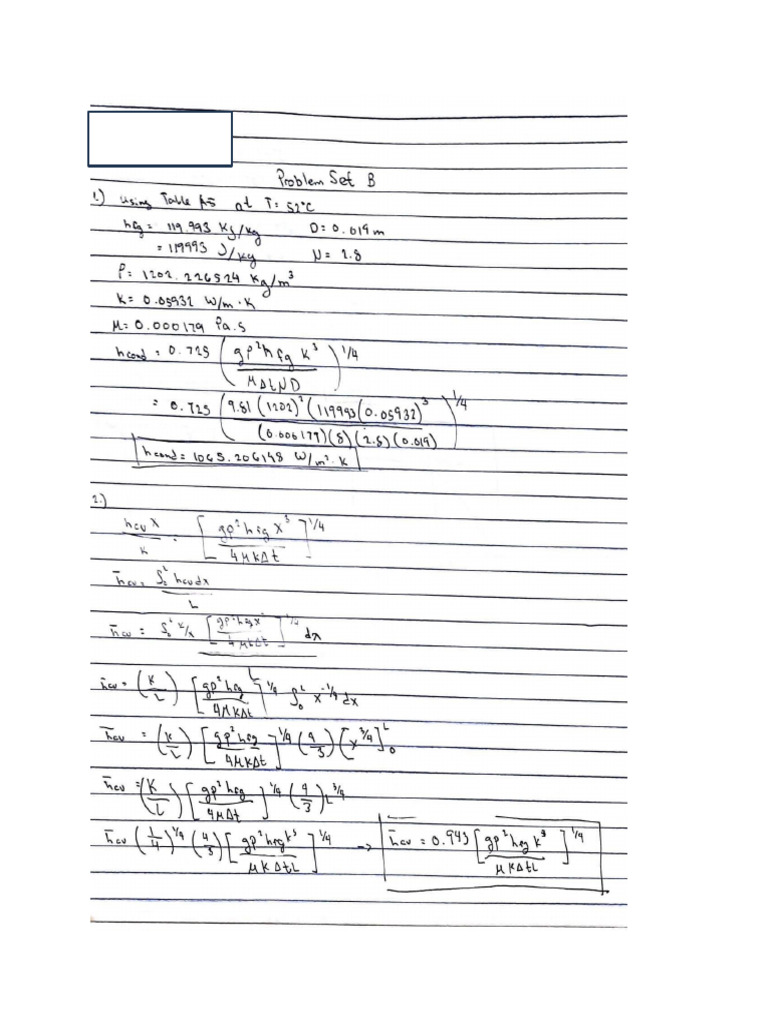 Problem Set B
1.) Using Table A5 at T= 52°C
hfg = 119.993 KJ/kg D = 0.019 m
= 119993 J/kg N = 2.8
ρ= 1202.226524 kg/m³
K= 0.05932 W/m·K
μ= 0.000179 Pa.s
hcond = 0.725 ( gρ²hfg k³ / μΔtND )^1/4
= 0.725 ( 9.81(1202)²(119993(0.05932)³ / (0.000179)(8)(2.8)(0.019) )^1/4
hcond = 1065.206148 W/m²·K
2.)
hcv x / k = [ gρ²hfg x³ / 4μkΔt ]^1/4
h̄cv = ∫₀ᴸ hcv dx / L
h̄cv = ∫₀ᴸ k/x [ gρ²hfg x³ / 4μkΔt ]^1/4 dx
h̄cv = (K/L) [ gρ²hfg / 4μkΔt ]^1/4 ∫₀ᴸ x^-1/4 dx
h̄cv = (K/L) [ gρ²hfg / 4μkΔt ]^1/4 (4/3) [x^3/4]₀ᴸ
h̄cv = (K/L) [ gρ²hfg / 4μΔt ]^1/4 (4/3) L^3/4
h̄cv (1/4)^1/4 (4/3) [ gρ²hfg k³ / μKΔtL ]^1/4 → h̄cv = 0.943 [ gρ²hfg k³ / μKΔtL ]^1/4